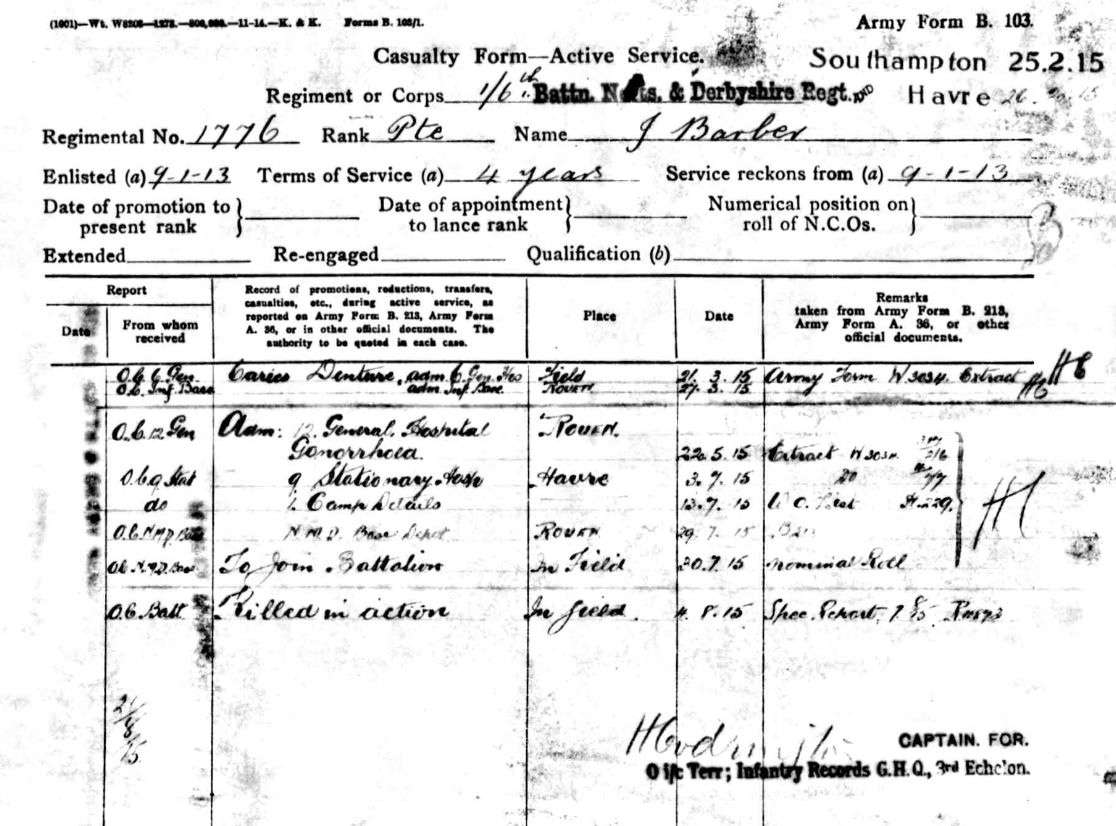 (1001)—Wt. W8203— —11-14.—K. & K. Forms B. 103/1. Army Form B. 103.
Casualty Form—Active Service.
Southampton 25.2.15
Regiment or Corps 1/6th Battn. Notts. & Derbyshire Regt. AND Havre 26. 15
Regimental No. 1776 Rank Pte Name J Barber
Enlisted (a) 9-1-13 Terms of Service (a) 4 years Service reckons from (a) 9-1-13
Date of promotion to present rank } Date of appointment to lance rank } Numerical position on roll of N.C.Os. }
Extended Re-engaged Qualification (b)
Report
Date
From whom received
Record of promotions, reductions, transfers,
casualties, etc., during active service, as
reported on Army Form B. 213, Army Form
A. 36, or in other official documents. The
authority to be quoted in each case.
Place
Date
Remarks
taken from Army Form B. 213,
Army Form A. 36, or other
official documents.
O.C. 6 Gen Caries Denture, adm 6 Gen. Hos Field 21. 3. 15 Army Form W 3034. Extract
O.C. Inf Base adm Inf Base Rouen 27. 3. 15
O.C. 12 Gen Adm: 12. General. Hospital Rouen.
Gonorrhoea. 22. 5. 15 Extract W 3034.
O.C. 9 Stat 9 Stationary Hosp Havre 3. 7. 15 do
do Camp Details 13. 7. 15
N.M.D. Base Depot Rouen 29. 7. 15
To Join Battalion In Field 30. 7. 15 nominal Roll
O.C. Batt Killed in action In field. 4. 8. 15
21/8/15
CAPTAIN. FOR.
O i/c Terr; Infantry Records G.H.Q., 3rd Echelon.